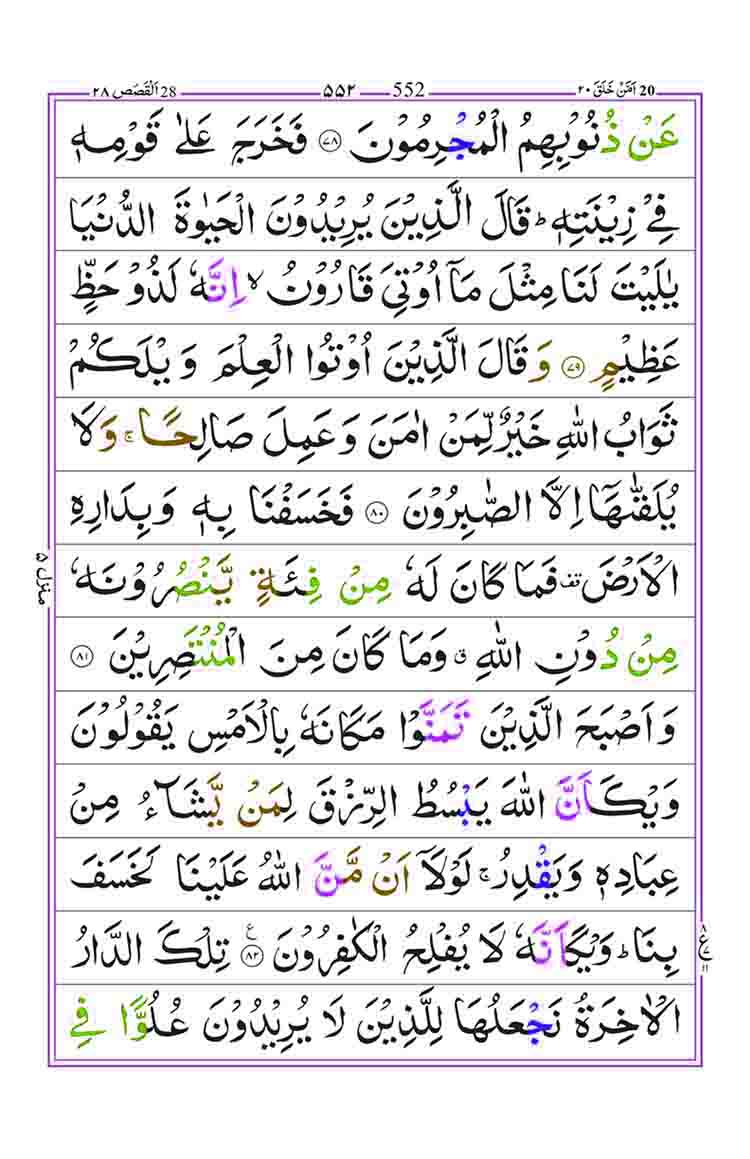 20 اَمَّنْ خَلَقَ ٢٠ 552 ۵۵۲ 28 اَلْقَصَص ٢٨
عَنْ ذُنُوْبِهِمُ الْمُجْرِمُوْنَ ﴿۷۸﴾ فَخَرَجَ عَلٰى قَوْمِهٖ
فِیْ زِیْنَتِهٖ ؕ قَالَ الَّذِیْنَ یُرِیْدُوْنَ الْحَیٰوةَ الدُّنْیَا
یٰلَیْتَ لَنَا مِثْلَ مَاۤ اُوْتِیَ قَارُوْنُ ۙ اِنَّهٗ لَذُوْ حَظٍّ
عَظِیْمٍ ﴿۷۹﴾ وَ قَالَ الَّذِیْنَ اُوْتُوا الْعِلْمَ وَیْلَكُمْ
ثَوَابُ اللّٰهِ خَیْرٌ لِّمَنْ اٰمَنَ وَ عَمِلَ صَالِحًا ۚ وَ لَا
یُلَقّٰىهَاۤ اِلَّا الصّٰبِرُوْنَ ﴿۸۰﴾ فَخَسَفْنَا بِهٖ وَ بِدَارِهِ
الْاَرْضَ ۫ فَمَا كَانَ لَهٗ مِنْ فِئَةٍ یَّنْصُرُوْنَهٗ
مِنْ دُوْنِ اللّٰهِ ۗ وَمَا كَانَ مِنَ الْمُنْتَصِرِیْنَ ﴿۸۱﴾
وَ اَصْبَحَ الَّذِیْنَ تَمَنَّوْا مَكَانَهٗ بِالْاَمْسِ یَقُوْلُوْنَ
وَیْكَاَنَّ اللّٰهَ یَبْسُطُ الرِّزْقَ لِمَنْ یَّشَآءُ مِنْ
عِبَادِهٖ وَیَقْدِرُ ۚ لَوْلَاۤ اَنْ مَّنَّ اللّٰهُ عَلَیْنَا لَخَسَفَ
بِنَا ؕ وَیْكَاَنَّهٗ لَا یُفْلِحُ الْكٰفِرُوْنَ ﴿۸۲﴾ تِلْكَ الدَّارُ
الْاٰخِرَةُ نَجْعَلُهَا لِلَّذِیْنَ لَا یُرِیْدُوْنَ عُلُوًّا فِی
منزل ۵
ع